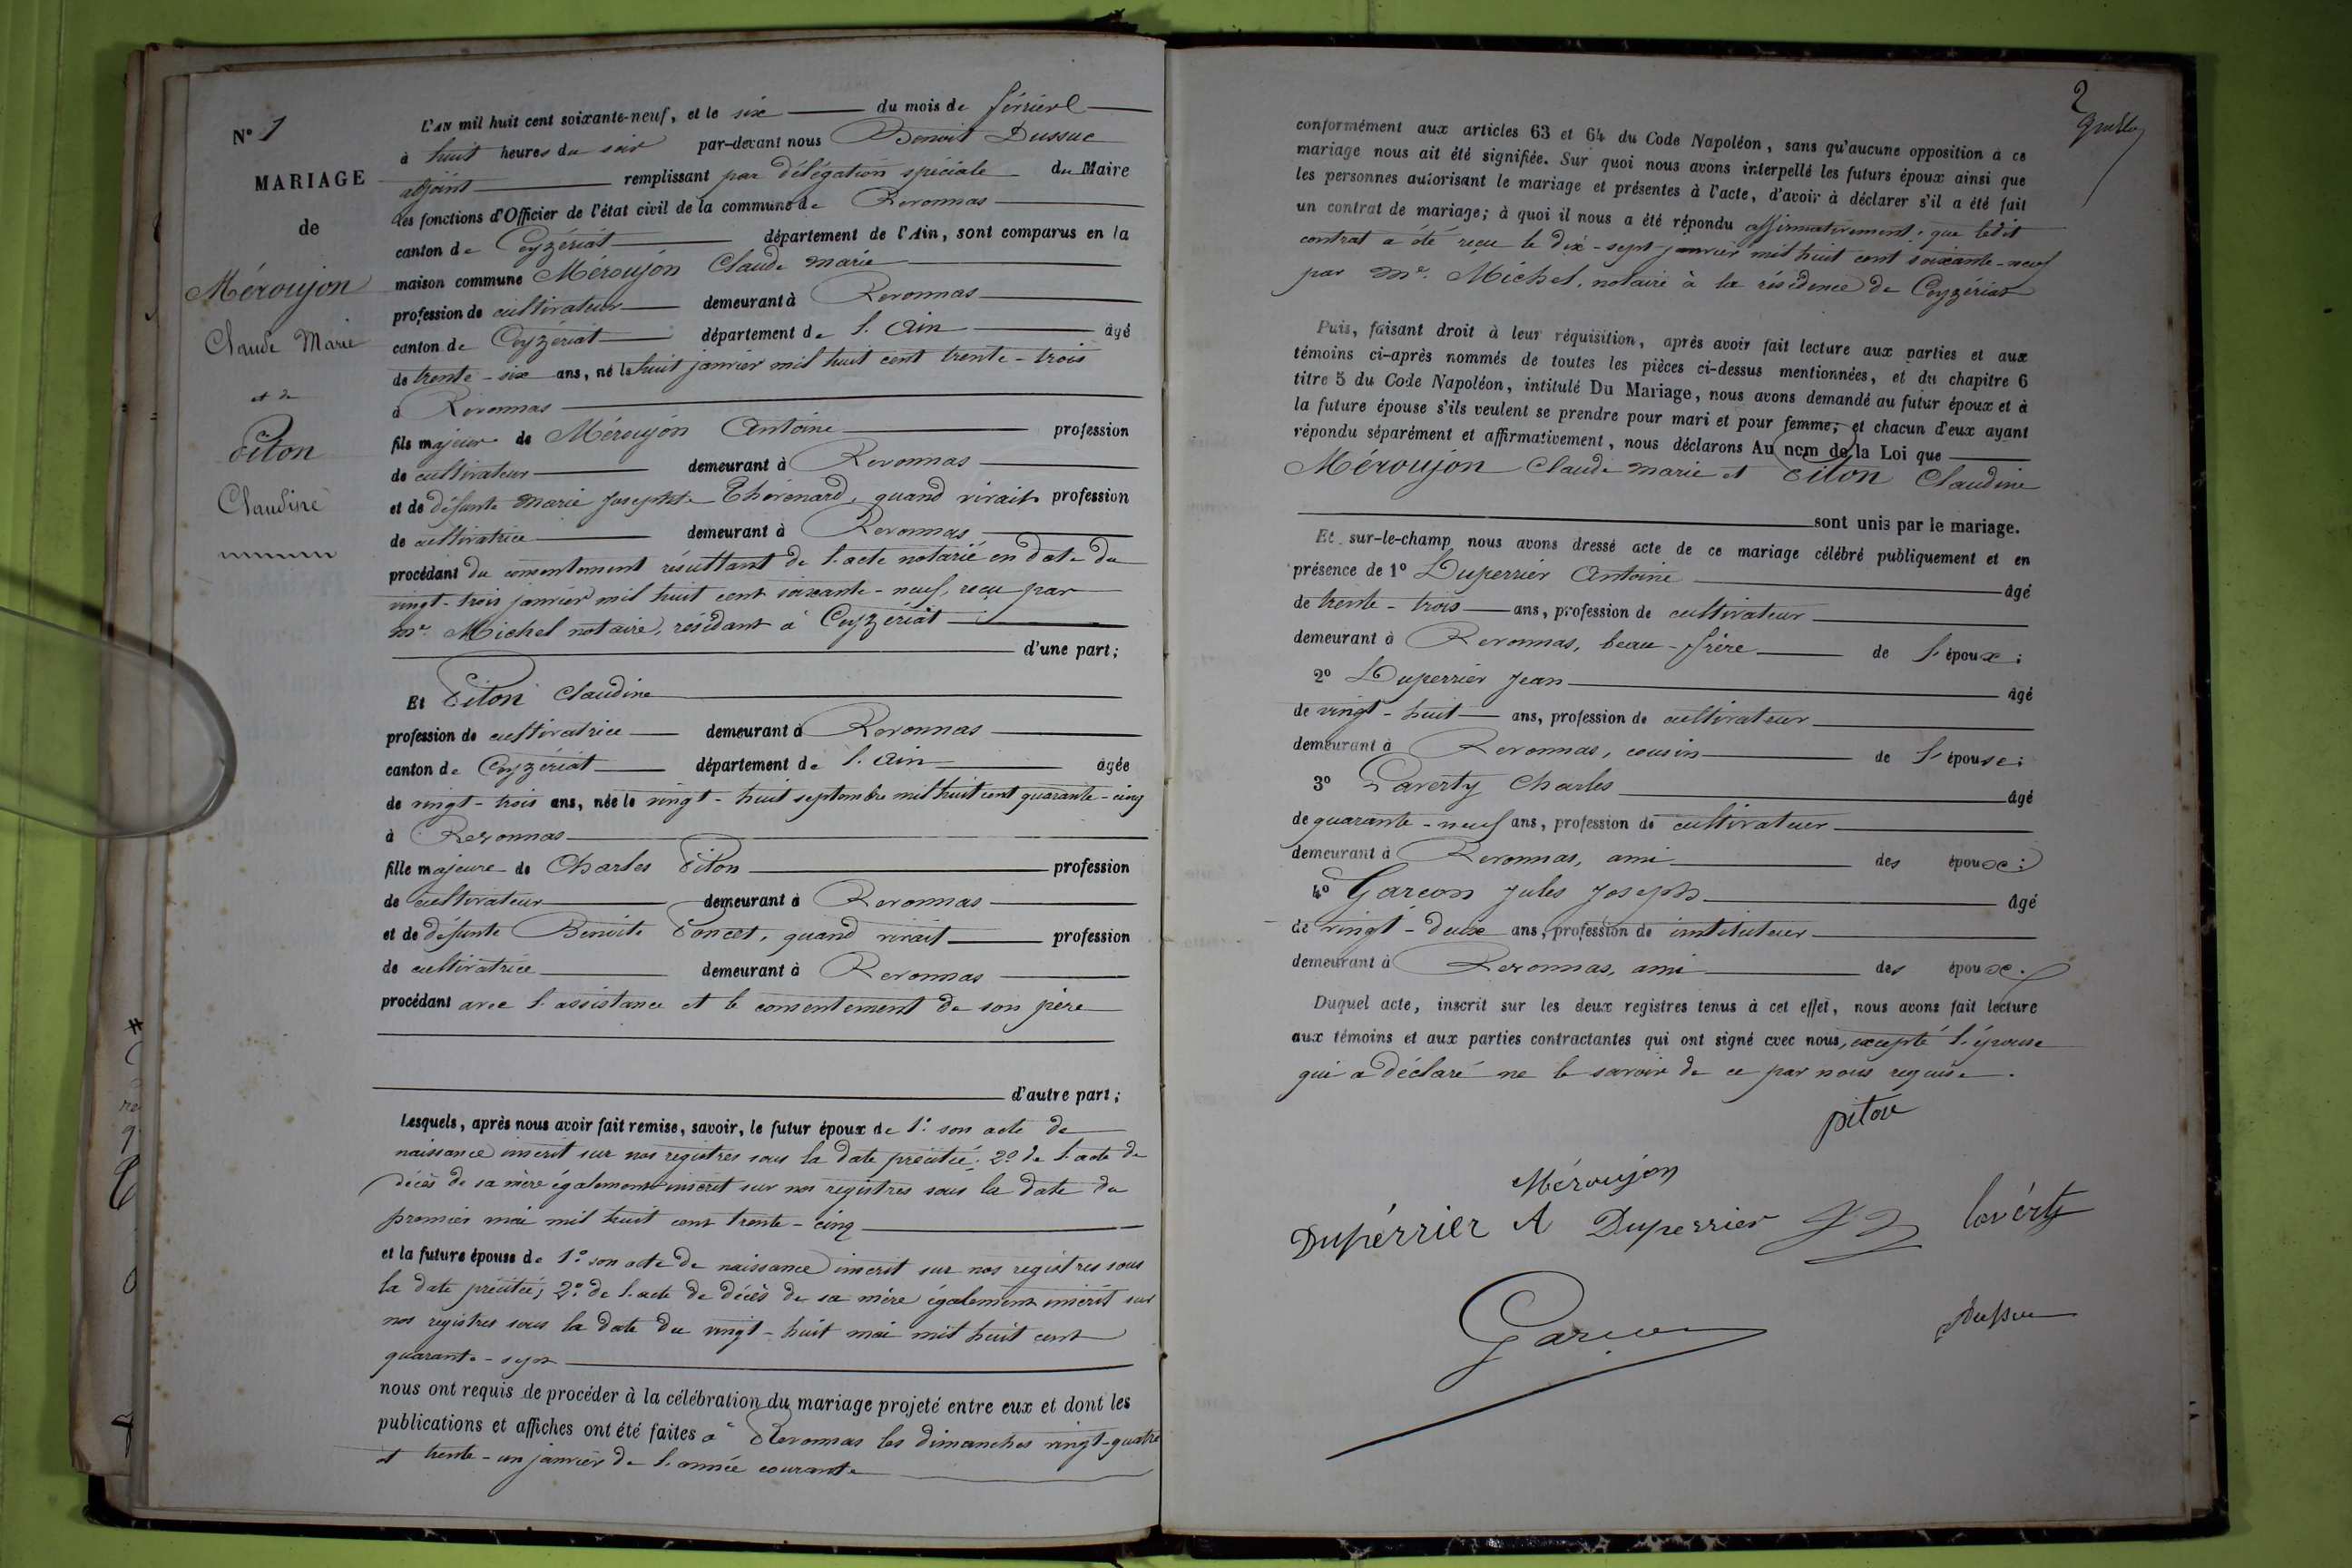 N° 1
MARIAGE
de
Méroujon
Claude Marie
et de
Piton
Claudine
L'AN mil huit cent soixante-neuf, et le six du mois de février
à huit heures du soir par-devant nous Benoit Dussuc
adjoint remplissant par délégation spéciale du Maire
les fonctions d'Officier de l'état civil de la commune de Revonnas
canton de Ceyzériat département de l'Ain, sont comparus en la
maison commune Méroujon Claude Marie
profession de cultivateur demeurant à Revonnas
canton de Ceyzériat département de l'Ain âgé
de trente-six ans, né le huit janvier mil huit cent trente-trois
à Revonnas
fils majeur de Méroujon Antoine profession
de cultivateur demeurant à Revonnas
et de défunte Marie Josephte Thévenard, quand vivait profession
de cultivatrice demeurant à Revonnas
procédant du consentement résultant de l'acte notarié en date du
vingt-trois janvier mil huit cent soixante-neuf, reçu par
Me Michel notaire, résidant à Ceyzériat
d'une part;
Et Piton Claudine
profession de cultivatrice demeurant à Revonnas
canton de Ceyzériat département de l'Ain âgée
de vingt-trois ans, née le vingt-huit septembre mil huit cent quarante-cinq
à Revonnas
fille majeure de Charles Piton profession
de cultivateur demeurant à Revonnas
et de défunte Benoite Poncet, quand vivait profession
de cultivatrice demeurant à Revonnas
procédant avec l'assistance et le consentement de son père
d'autre part;
Lesquels, après nous avoir fait remise, savoir, le futur époux de 1° son acte de
naissance inscrit sur nos registres sous la date précitée; 2° de l'acte de
décès de sa mère également inscrit sur nos registres sous la date du
premier mai mil huit cent trente-cinq
et la future épouse de 1° son acte de naissance inscrit sur nos registres sous
la date précitée; 2° de l'acte de décès de sa mère également inscrit sur
nos registres sous la date du vingt-huit mai mil huit cent
quarante-sept
nous ont requis de procéder à la célébration du mariage projeté entre eux et dont les
publications et affiches ont été faites à Revonnas les dimanches vingt-quatre
et trente-un janvier de l'année courante
2
conformément aux articles 63 et 64 du Code Napoléon, sans qu'aucune opposition à ce
mariage nous ait été signifiée. Sur quoi nous avons interpellé les futurs époux ainsi que
les personnes autorisant le mariage et présentes à l'acte, d'avoir à déclarer s'il a été fait
un contrat de mariage; à quoi il nous a été répondu affirmativement; que ledit
contrat a été reçu le dix-sept janvier mil huit cent soixante-neuf
par Me. Michel, notaire à la résidence de Ceyzériat
Puis, faisant droit à leur réquisition, après avoir fait lecture aux parties et aux
témoins ci-après nommés de toutes les pièces ci-dessus mentionnées, et du chapitre 6
titre 5 du Code Napoléon, intitulé Du Mariage, nous avons demandé au futur époux et à
la future épouse s'ils veulent se prendre pour mari et pour femme; et chacun d'eux ayant
répondu séparément et affirmativement, nous déclarons Au nom de la Loi que
Méroujon Claude Marie et Piton Claudine
sont unis par le mariage.
Et sur-le-champ nous avons dressé acte de ce mariage célébré publiquement et en
présence de 1° Duperrier Antoine âgé
de trente-trois ans, profession de cultivateur
demeurant à Revonnas, beau-frère de l'époux;
2° Duperrier Jean âgé
de vingt-huit ans, profession de cultivateur
demeurant à Revonnas, cousin de l'épouse;
3° Laverty Charles âgé
de quarante-neuf ans, profession de cultivateur
demeurant à Revonnas, ami des époux;
4° Garcon Jules Joseph âgé
de vingt-deux ans, profession de instituteur
demeurant à Revonnas, ami des époux.
Duquel acte, inscrit sur les deux registres tenus à cet effet, nous avons fait lecture
aux témoins et aux parties contractantes qui ont signé avec nous, excepté l'épouse
qui a déclaré ne le savoir de ce par nous requise.
piton
Méroujon
Dupérrier A Duperrier lavérty
Garcon
Dussuc